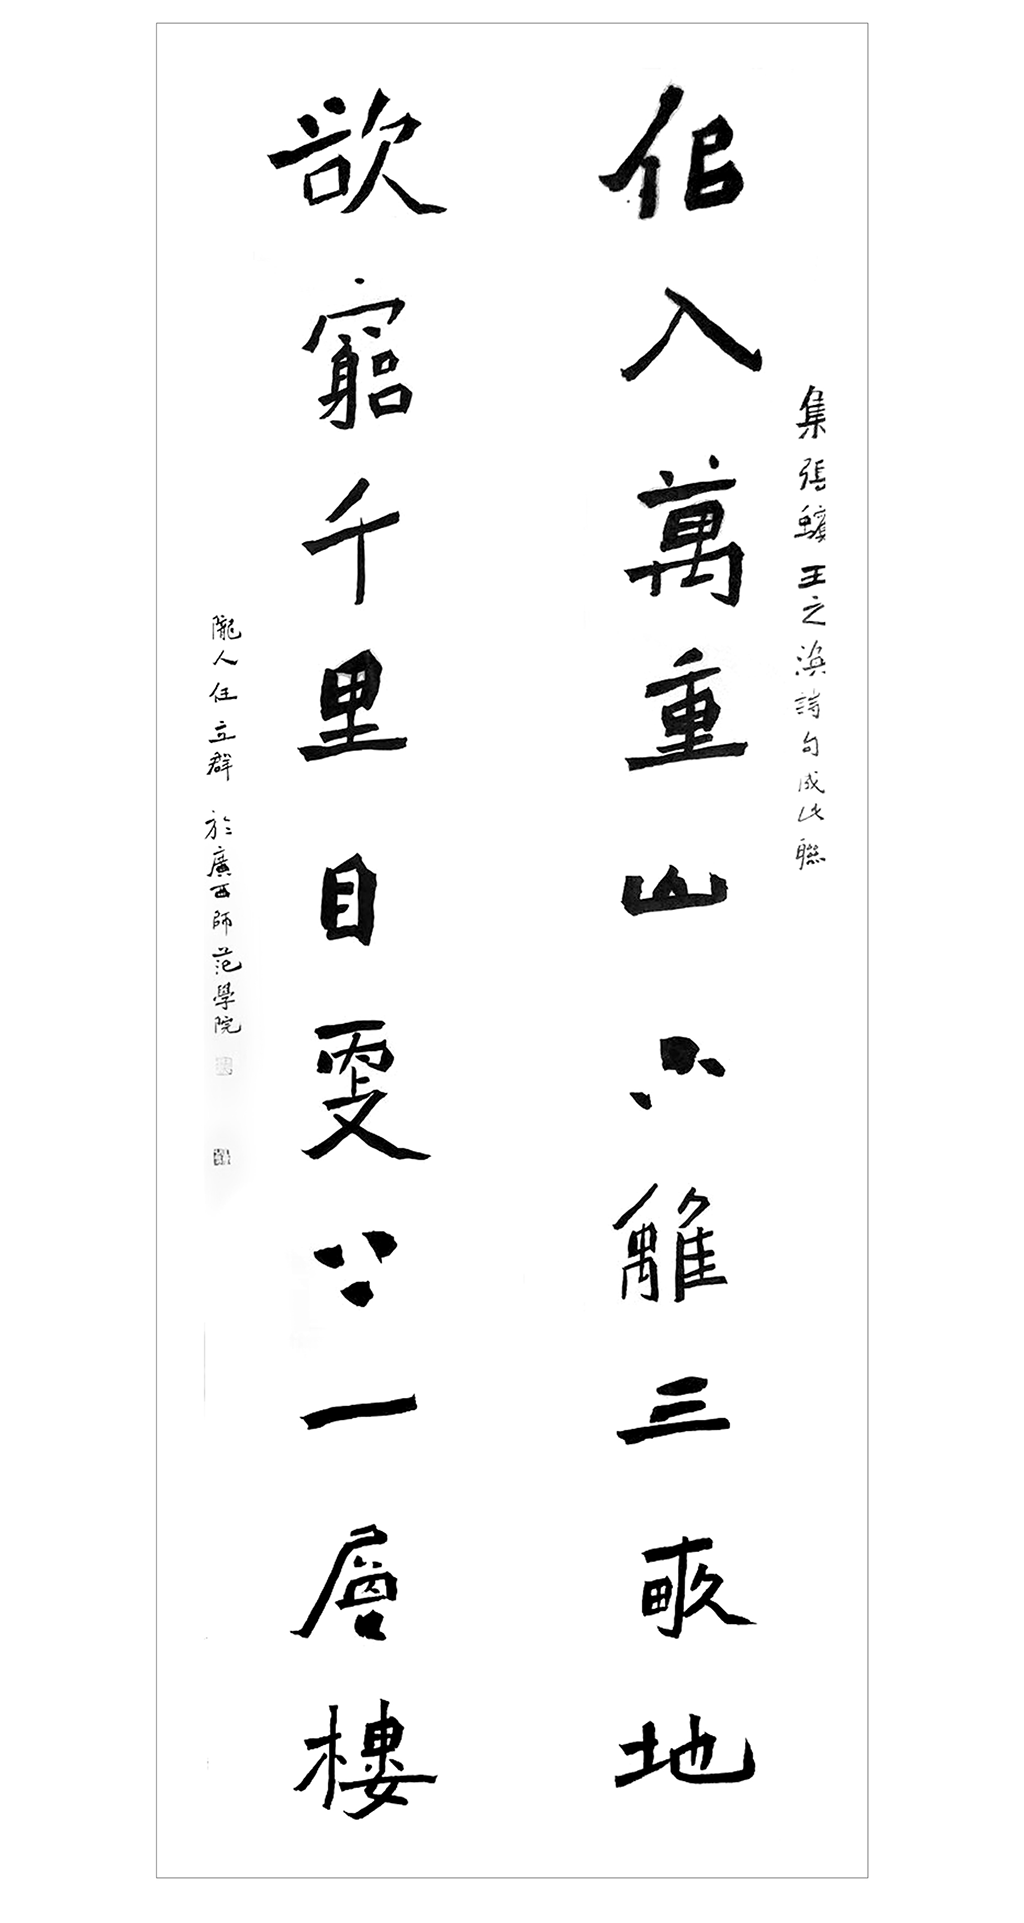 集張蠙王之渙詩句成此聯
佀入萬重山不離三畝地
欲窮千里目更上一層樓
隴人任立群 於廣西師范學院